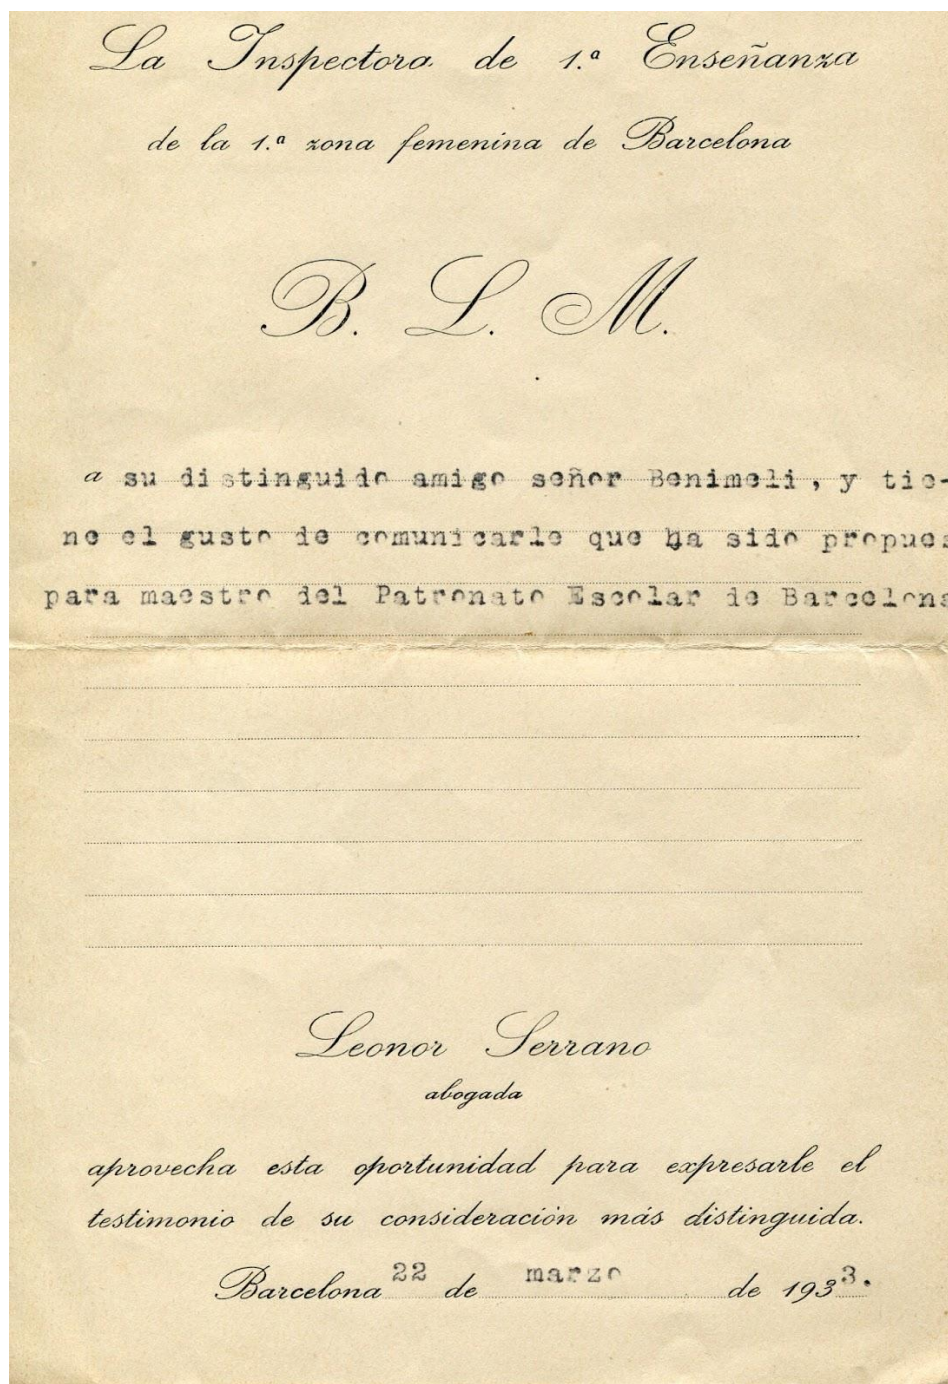 La Inspectora de 1.ª Enseñanza
de la 1.ª zona femenina de Barcelona
B. L. M.
a su distinguido amigo señor Benimeli, y tie-
ne el gusto de comunicarle que ha sido propues
para maestro del Patronato Escolar de Barcelona
Leonor Serrano
abogada
aprovecha esta oportunidad para expresarle el
testimonio de su consideración más distinguida.
Barcelona 22 de marzo de 1933.